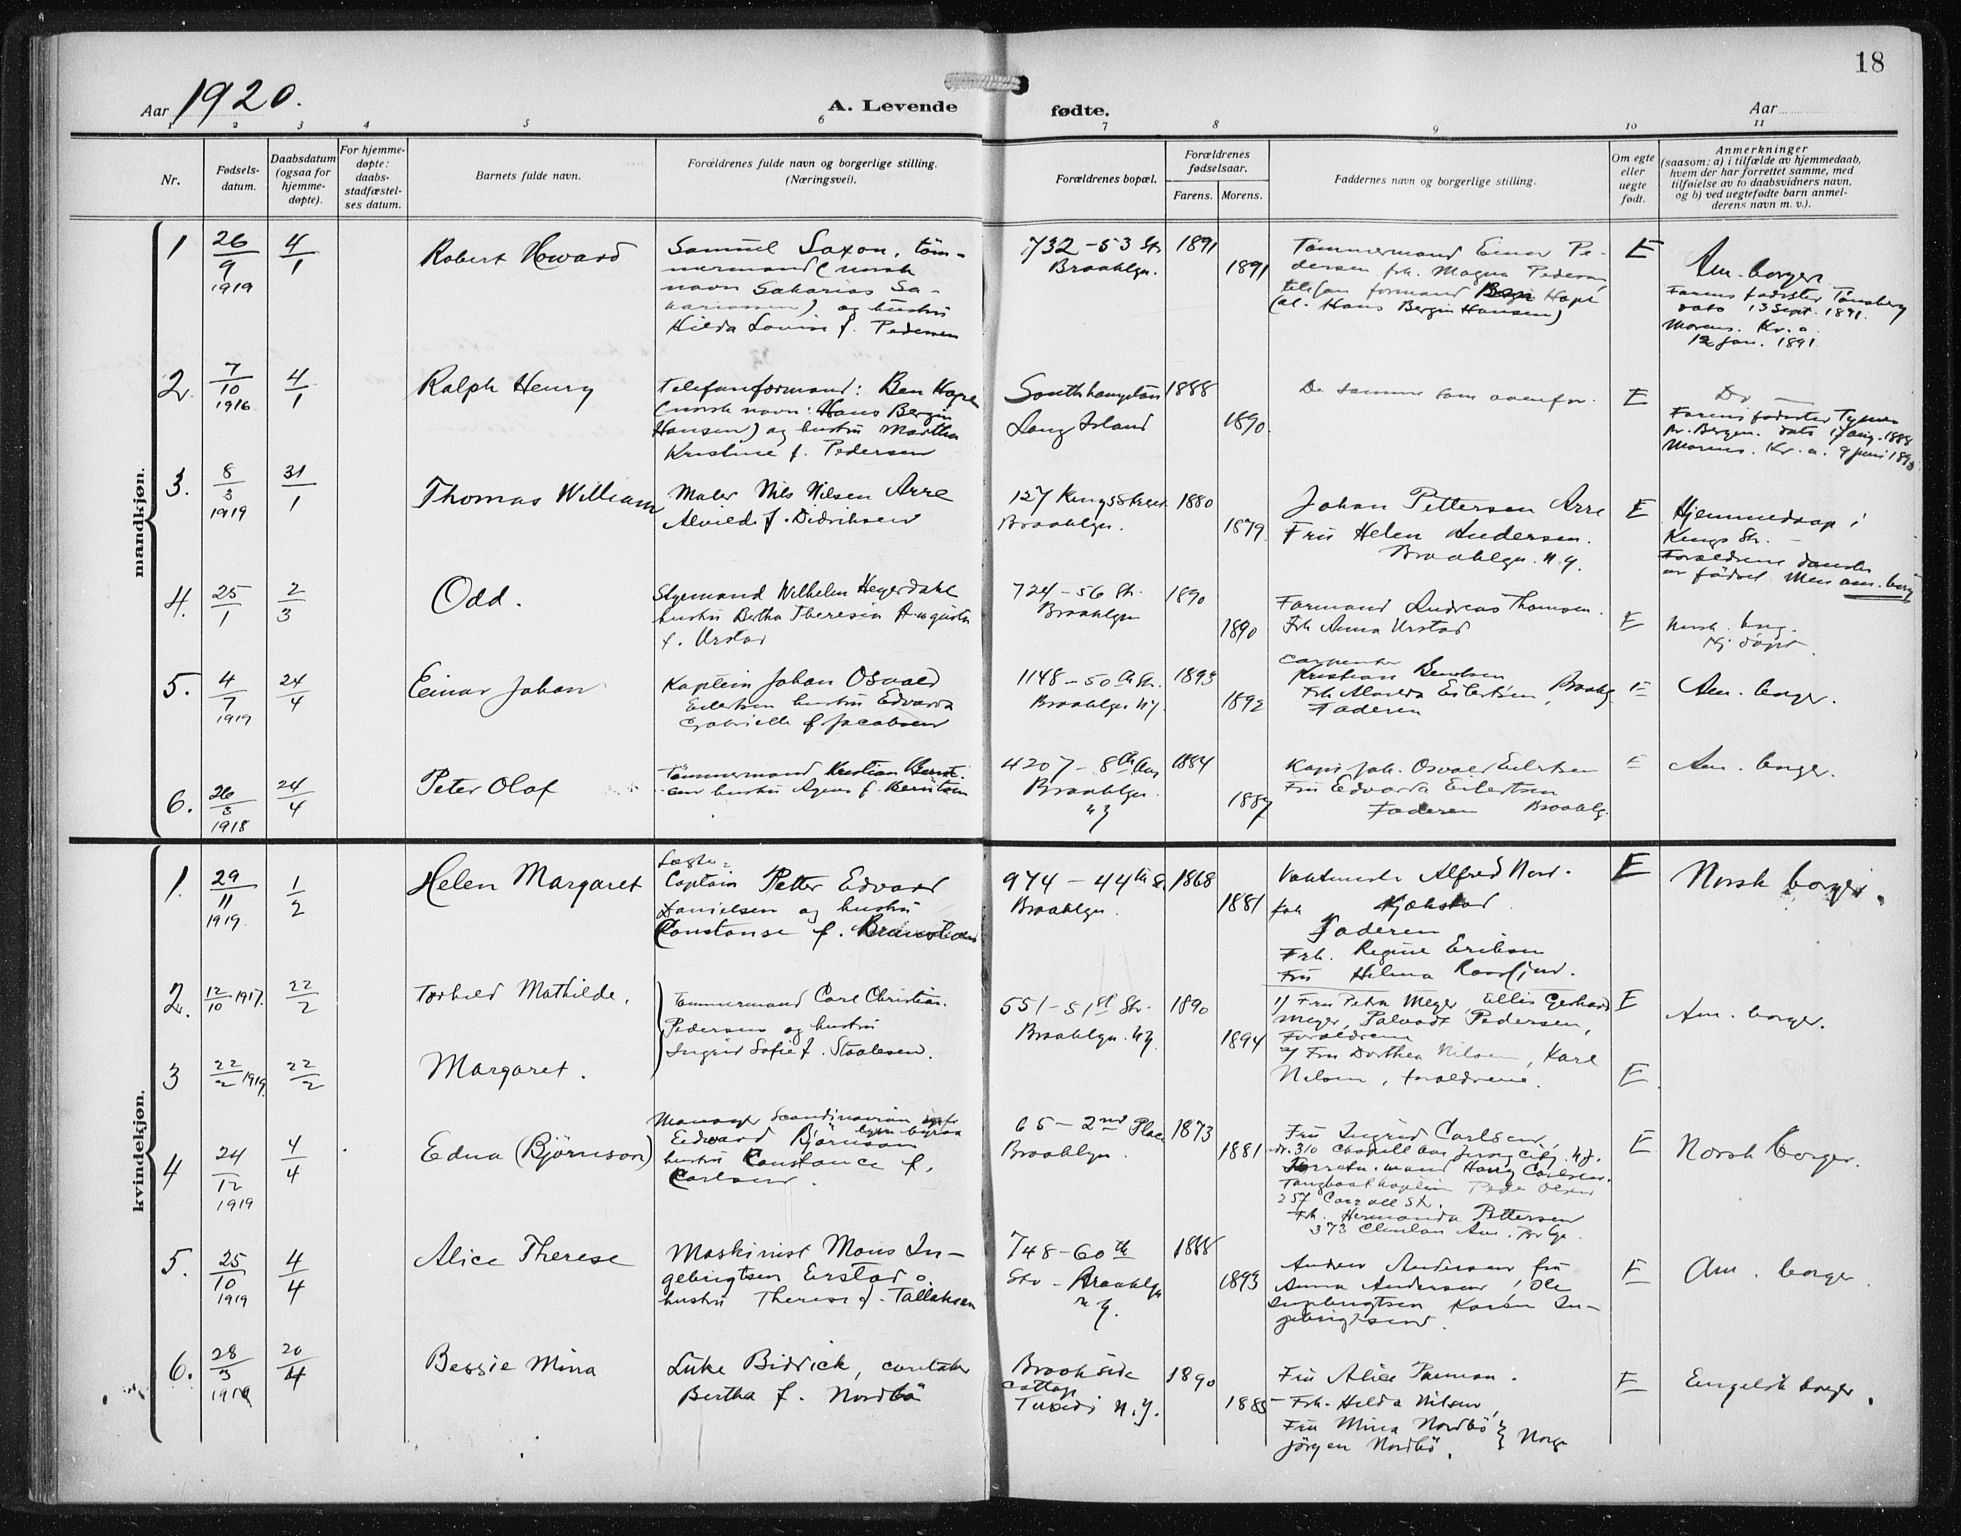 18
Aar 1920.
A. Levende fødte.
Aar
1 2 3 4 5 6 7 8 9 10 11
Nr.
Fødsels-
datum.
Daabsdatum
(ogsaa for
hjemme-
døpte).
For hjemme-
døpte:
daabs-
stadfæstel-
ses datum.
Barnets fulde navn.
Forældrenes fulde navn og borgerlige stilling.
(Næringsvei).
Forældrenes bopæl.
Forældrenes
fødselsaar.
Farens. Morens.
Faddernes navn og borgerlige stilling.
Om egte
eller
uegte
født.
Anmerkninger
(saasom: a) i tilfælde av hjemmedaab,
hvem der har forrettet samme, med
tilføielse av to daabsvidners navn,
og b) ved uegtefødte barn anmel-
derens navn m. v.).
mandkjøn.
1
26/9 1919
4/1
Robert Howard
Samuel Saxon, töm-
mermand (norsk
navn Sakarias Sa-
kariassen) og hustru
Hilda Lovise f. Pedersen
732 - 53 Str
Brooklyn.
1891
1891
Tömmermand Einar Pe-
dersen frk. Magna Pedersen
telefon formand Hope
(al. Hans Bergin Hansen)
E
Am. borger
Farens fødested Tønsberg
dato 13 Sept. 1891.
Morens. Kr. a.
12 jan. 1891
2
7/10 1916
4/1
Ralph Henry
Telefonformand: Ben Hope
(norsk navn: Hans Bergin
Hansen) og hustru Martha
Kristine f. Pedersen
Southhampton
Long Island
1888
1890.
De samme som ovenfor.
E
Do —
Farens fødested
pr. Bergen. dato 17 aug. 1888
Morens. Kr. a. 9 juni 1890
3.
8/3 1919
31/1
Thomas William
Maler Nils Nilsen Arre
Alvilde f. Didriksen
127 Kings Street
Brooklyn.
1880
1879
Johan Pettersen Arre
Fru Helen Andersen.
Brooklyn. N.Y.
E
Hjemmedaap i
Kings Str. —
Forældrene danske
av födsel men am. borg
4.
25/1
2/3
Odd.
Styrmand Wilhelm Heyerdahl
hustru Bertha Theresia Augusta
f. Urstad
724 - 56 Str.
Brooklyn
1890
1890
Formand Andreas Thomsen.
Frk Anna Urstad
E
Norsk. borg.
5.
4/7 1919
24/4
Einar Johan
Kaptein Johan Osvald
Eilertsen hustru Edvarda
Gabrielle f. Jacobsen
1148 - 50th Str.
Brooklyn N.Y.
1893
1892
Carpenter
Kristian Berntsen
Frk Eilertsen, Brookl.
Faderen
E
Am. borger.
6.
26/3 1918
24/4
Peter Olaf
Tömmermand Kristian Bernt-
sen hustru Agnes f. Berntsen
4207 - 8th Ave
Brooklyn.
N.Y
1884
1887
Kapt. Joh. Osvald Eilertsen
Fru Edvarda Eilertsen
Faderen Brooklg.
E
Am. borger.
kvindekjøn.
1.
29/11 1919.
1/2
Helen Margaret
Captain Petter Edvard
Danielsen og hustru
Constanse f.
974 - 44th St
Brooklyn.
1868
1881
Alfred Nord.
frk
Faderen
Frk. Regine Eriksen
Fru Helma
E
Norsk borger.
2.
12/10 1917.
22/2
Torhild Mathilde.
Tömmermand Carl Christian.
Pedersen og hustru
Ingrid Sofie f. Staalesen.
551 - 51st Str.
Brooklyn. N.Y.
1890
1894
1/ Fru Petra Meyer, Ellis Gerhard
Meyer, Pedersen,
Forældrene
2/ Fru Dorthea Nilsen, Karl
Nilsen, forældrene.
E
Am. borger.
3
22/2 1919
22/2
Margaret.
E
4
24/12 1919
4/4
Edna (Björnson)
Manager Scandinavian
Edward Björnson
hustru Constance f.
Carlsen.
65 - 2nd Place
Brooklyn.
1873
1881
Fru Ingrid Carlsen,
nr. 310 Ave Jersey City. N.J.
mand Harry Carlsen.
Peder Olsen
257 Carroll St.
Frk. Hermanda Pettersen
373 Clinton Ave. Br.lyn.
E
Norsk borger.
5.
25/10 1919
4/4
Alice Therese
Maskinist Mons In-
gebrigtsen Erstad o.
hustru Therese f. Tallaksen
748 - 60th
Str - Brooklyn
N.Y.
1888
1893
Andrew Andersen fru
Anna Andersen, Ole
Ingebrigtsen Karen In-
gebrigtsen.
E
Am. borger.
6.
28/3
20/4
Bessie Mina
Luke Bidrick, caretaker
Bertha f. Nordbö
Brookside
Cottage
Tuxedo N.Y.
1890
1885
Fru Alice Parman.
Frk. Hilda Nilsen,
Fru Mina Nordbö
Jörgen Nordbö. } Norge
E
Engelsk borger.